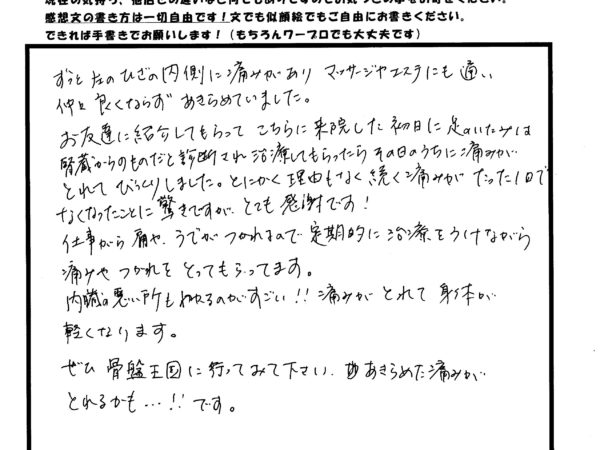 感想文の書き方は一切自由です！文でも似顔絵でもご自由にお書きください。
できれば手書きでお願いします！（もちろんワープロでも大丈夫です）
ずっと左のひざの内側に痛みがあり マッサージやエステにも通い
仲々良くならず あきらめていました。
お友達に紹介してもらって こちらに来院した初日に足のいたみは
腎臓からのものだと診断され治療してもらったら その日のうちに痛みが
とれて びっくりしました。とにかく理由もなく続く痛みが たった1日で
なくなったことに驚きですが、とても感謝です！
仕事がら肩や、うでがつかれるので定期的に治療をうけながら
痛みや つかれを とってもらってます。
内臓の悪い所もわかるのがすごい!!痛みがとれて身体が
軽くなります。
ぜひ 骨盤王国に行ってみて下さい、あきらめた痛みが
とれるかも…!!です。